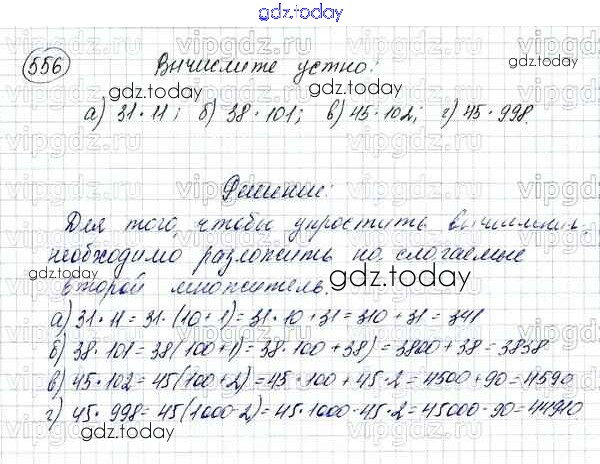 gdz.today
556 Вычислите устно:
а) 31·11; б) 38·101; в) 45·102; г) 45·998.
Решение:
Для того, чтобы упростить вычисления,
необходимо разложить на слагаемые
второй множитель.
а) 31·11 = 31·(10+1) = 31·10+31 = 310+31 = 341
б) 38·101 = 38(100+1) = 38·100+38) = 3800+38 = 3838
в) 45·102 = 45(100+2) = 45·100+45·2 = 4500+90 = 4590
г) 45·998 = 45(1000-2) = 45·1000-45·2 = 45000-90 = 44910
gdz.today
gdz.today
gdz.today
gdz.today
gdz.today
gdz.today
gdz.today
vipgdz.ru